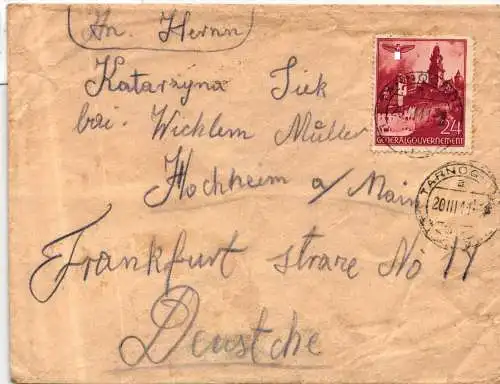 An. Herrn
Katarzyna Siek
bei. Wicklem Müller
Hochheim a/Main
Frankfurt straze No 14
Deustche
24
GENERALGOUVERNEMENT
TARNOG
a
20III41